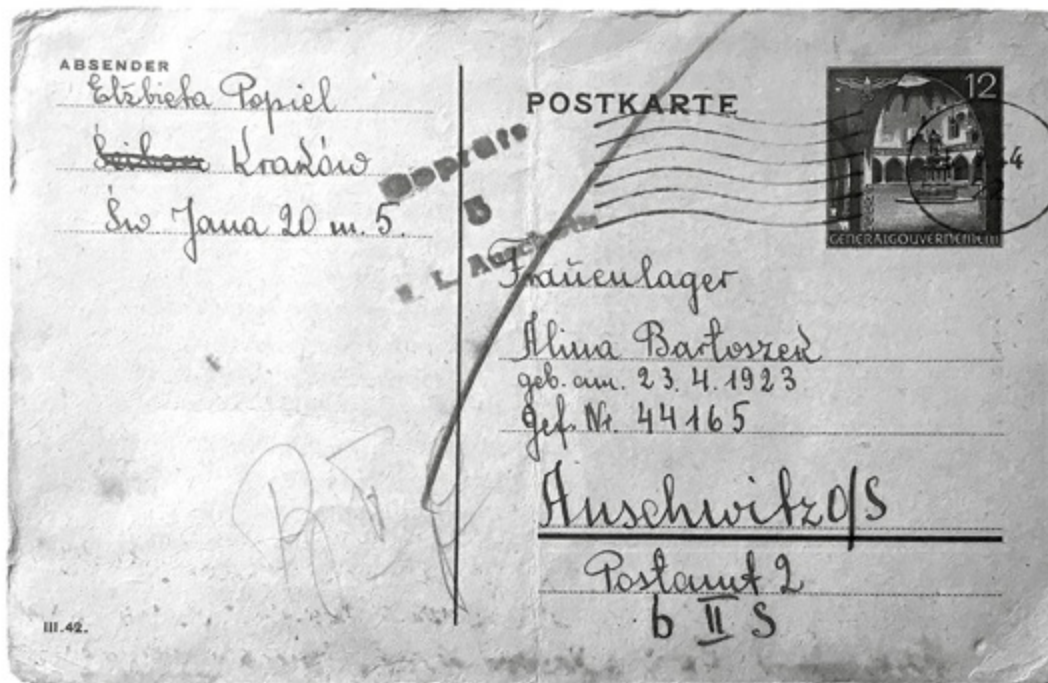 ABSENDER
Elżbieta Popiel
Kraków
Św Jana 20 m. 5.
POSTKARTE
12
44
GENERALGOUVERNEMENT
Geprüft
3
K. L. Auschwitz
Fraüenlager
Alina Bartoszek
geb. am. 23. 4. 1923
Gef. Nr. 44165
Auschwitz O/S
Postamt 2
b II S
III.42.